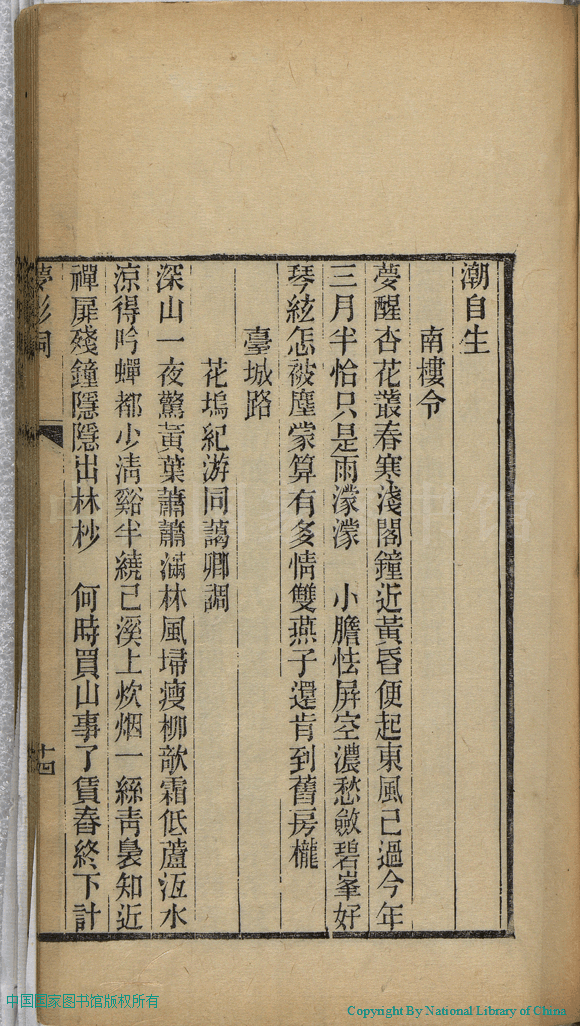 潮自生
南樓令
夢醒杏花叢春寒淺閣鐘近黃昏便起東風已過今年
三月半恰只是雨濛濛　小膽怯屏空濃愁斂碧峯好
琴絃怎被塵蒙算有多情雙燕子還肯到舊房櫳
臺城路
花塢紀游同藹卿調
深山一夜驚黃葉蕭蕭滿林風埽瘦柳欹霜低蘆冱水
涼得吟蟬都少清谿半繞已溪上炊烟一絲靑裊知近
禪扉殘鐘隱隱出林杪　何時買山事了賃舂終下計
夢影詞
十四
中国国家图书馆版权所有
Copyright By National Library of China